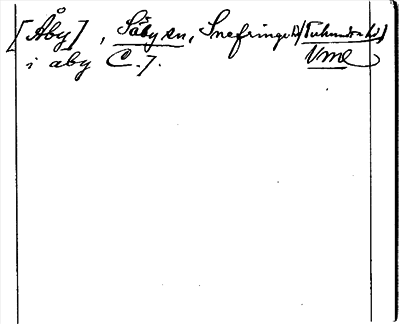 [Åby], Säby sn, Snefringe hd (Tuhundra hd)
Vml
i aby C.].